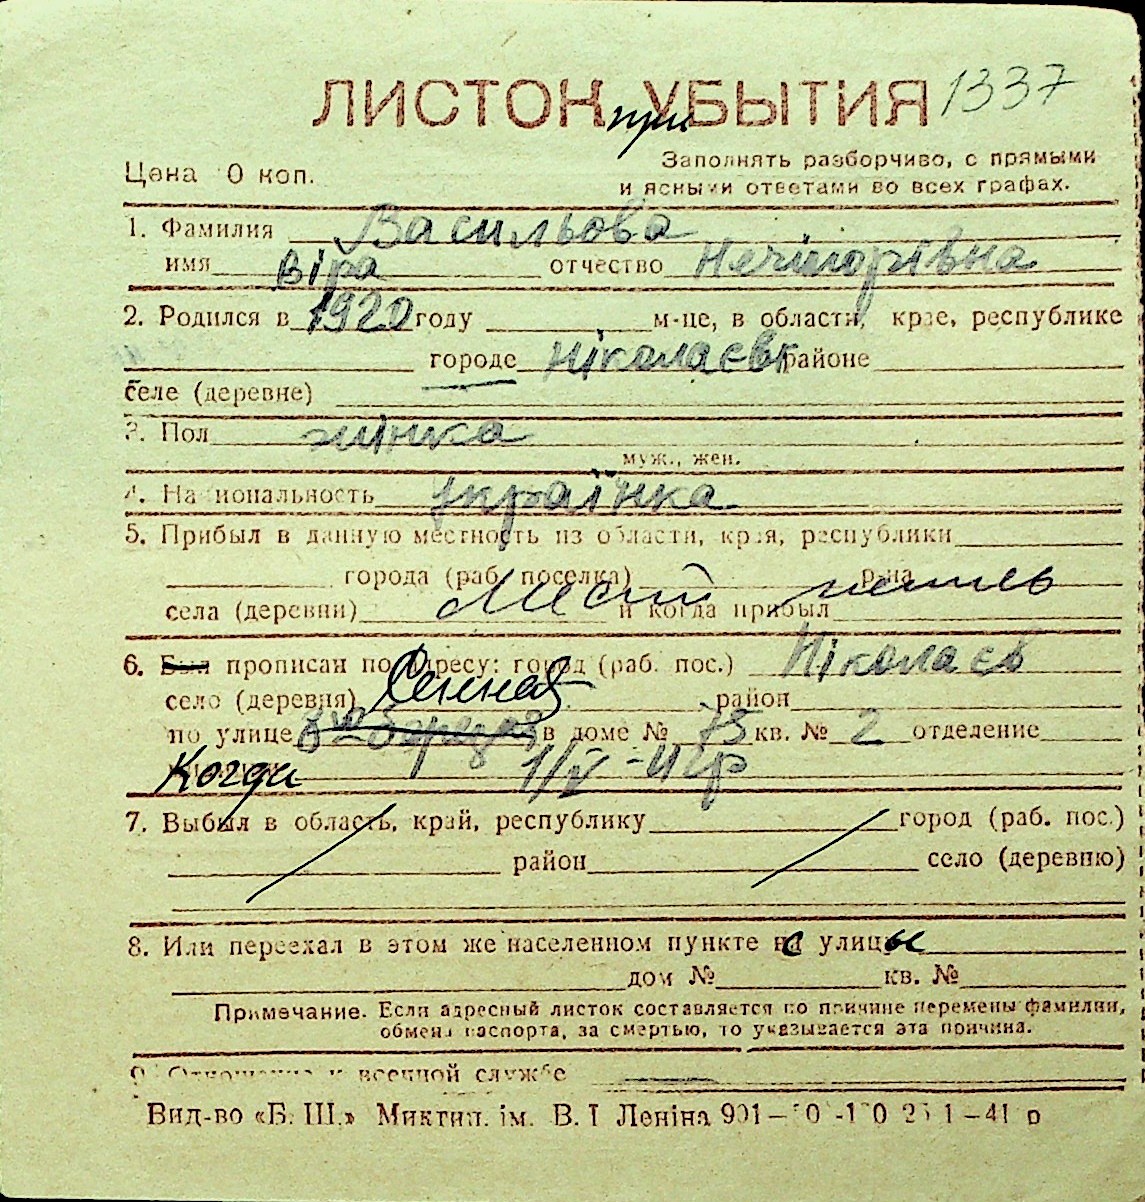 ЛИСТОК при УБЫТИЯ 1337
Цена 0 коп.
Заполнять разборчиво, с прямыми
и ясными ответами во всех графах.
1. Фамилия Васильова
имя Віра отчество Нечипорівна
2. Родился в 1920 году м-це, в области, крае, республике
городе Ніколаєві районе
селе (деревне)
3. Пол жінка
муж., жен.
4. Национальность українка
5. Прибыл в данную местность из области, края, республики
города (раб. поселка) р-на
села (деревни) Местн житель и когда прибыл
6. Был прописан по адресу: город (раб. пос.) Ніколаєв
село (деревня) Сенная район
по улице в доме № 75 кв. № 2 отделение
Когда 1/V-41 гр
7. Выбыл в область, край, республику город (раб. пос.)
район село (деревню)
8. Или переехал в этом же населенном пункте с улицы
дом № кв. №
Примечание. Если адресный листок составляется по причине перемены фамилии,
обмена паспорта, за смертью, то указывается эта причина.
9. Отношение к военной службе
Вид-во «Б. Ш.» Миктип. ім. В. І Леніна